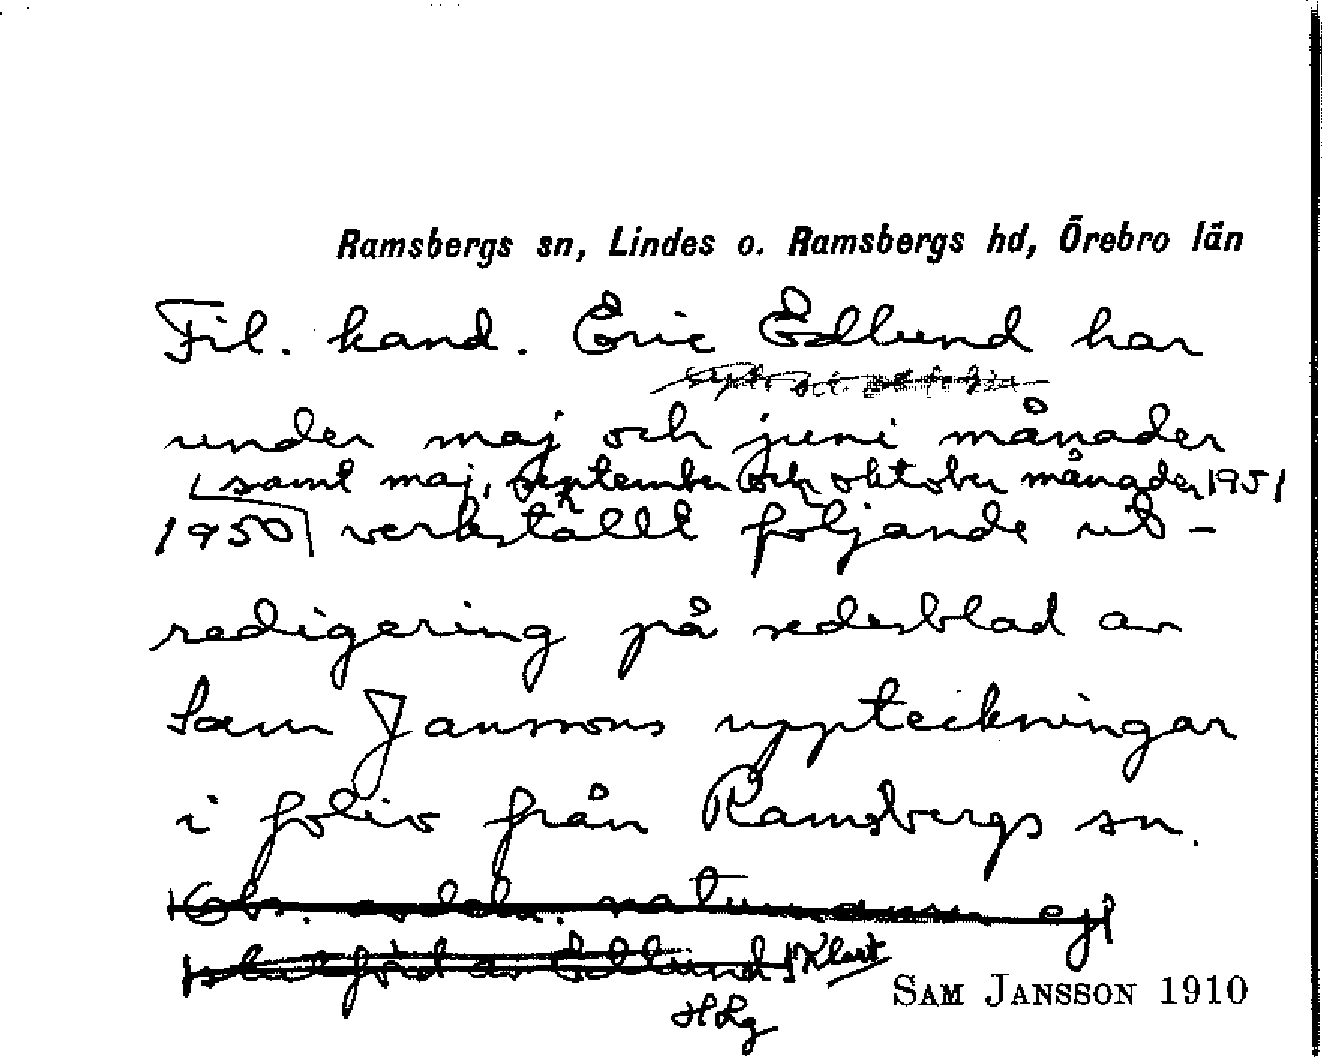 Ramsbergs sn, Lindes o. Ramsbergs hd, Örebro län
Fil. kand. Eric Edlund har
under maj och juni månader
samt maj, september och oktober månader 1951
1950 verkställt följande ut-
redigering på sedesblad av
Sam Janssons uppteckningar
i folio från Ramsbergs sn.
Obs. avdeln. naturnamn ej
slutförd av Edlund! Klart
HLg
SAM JANSSON 1910